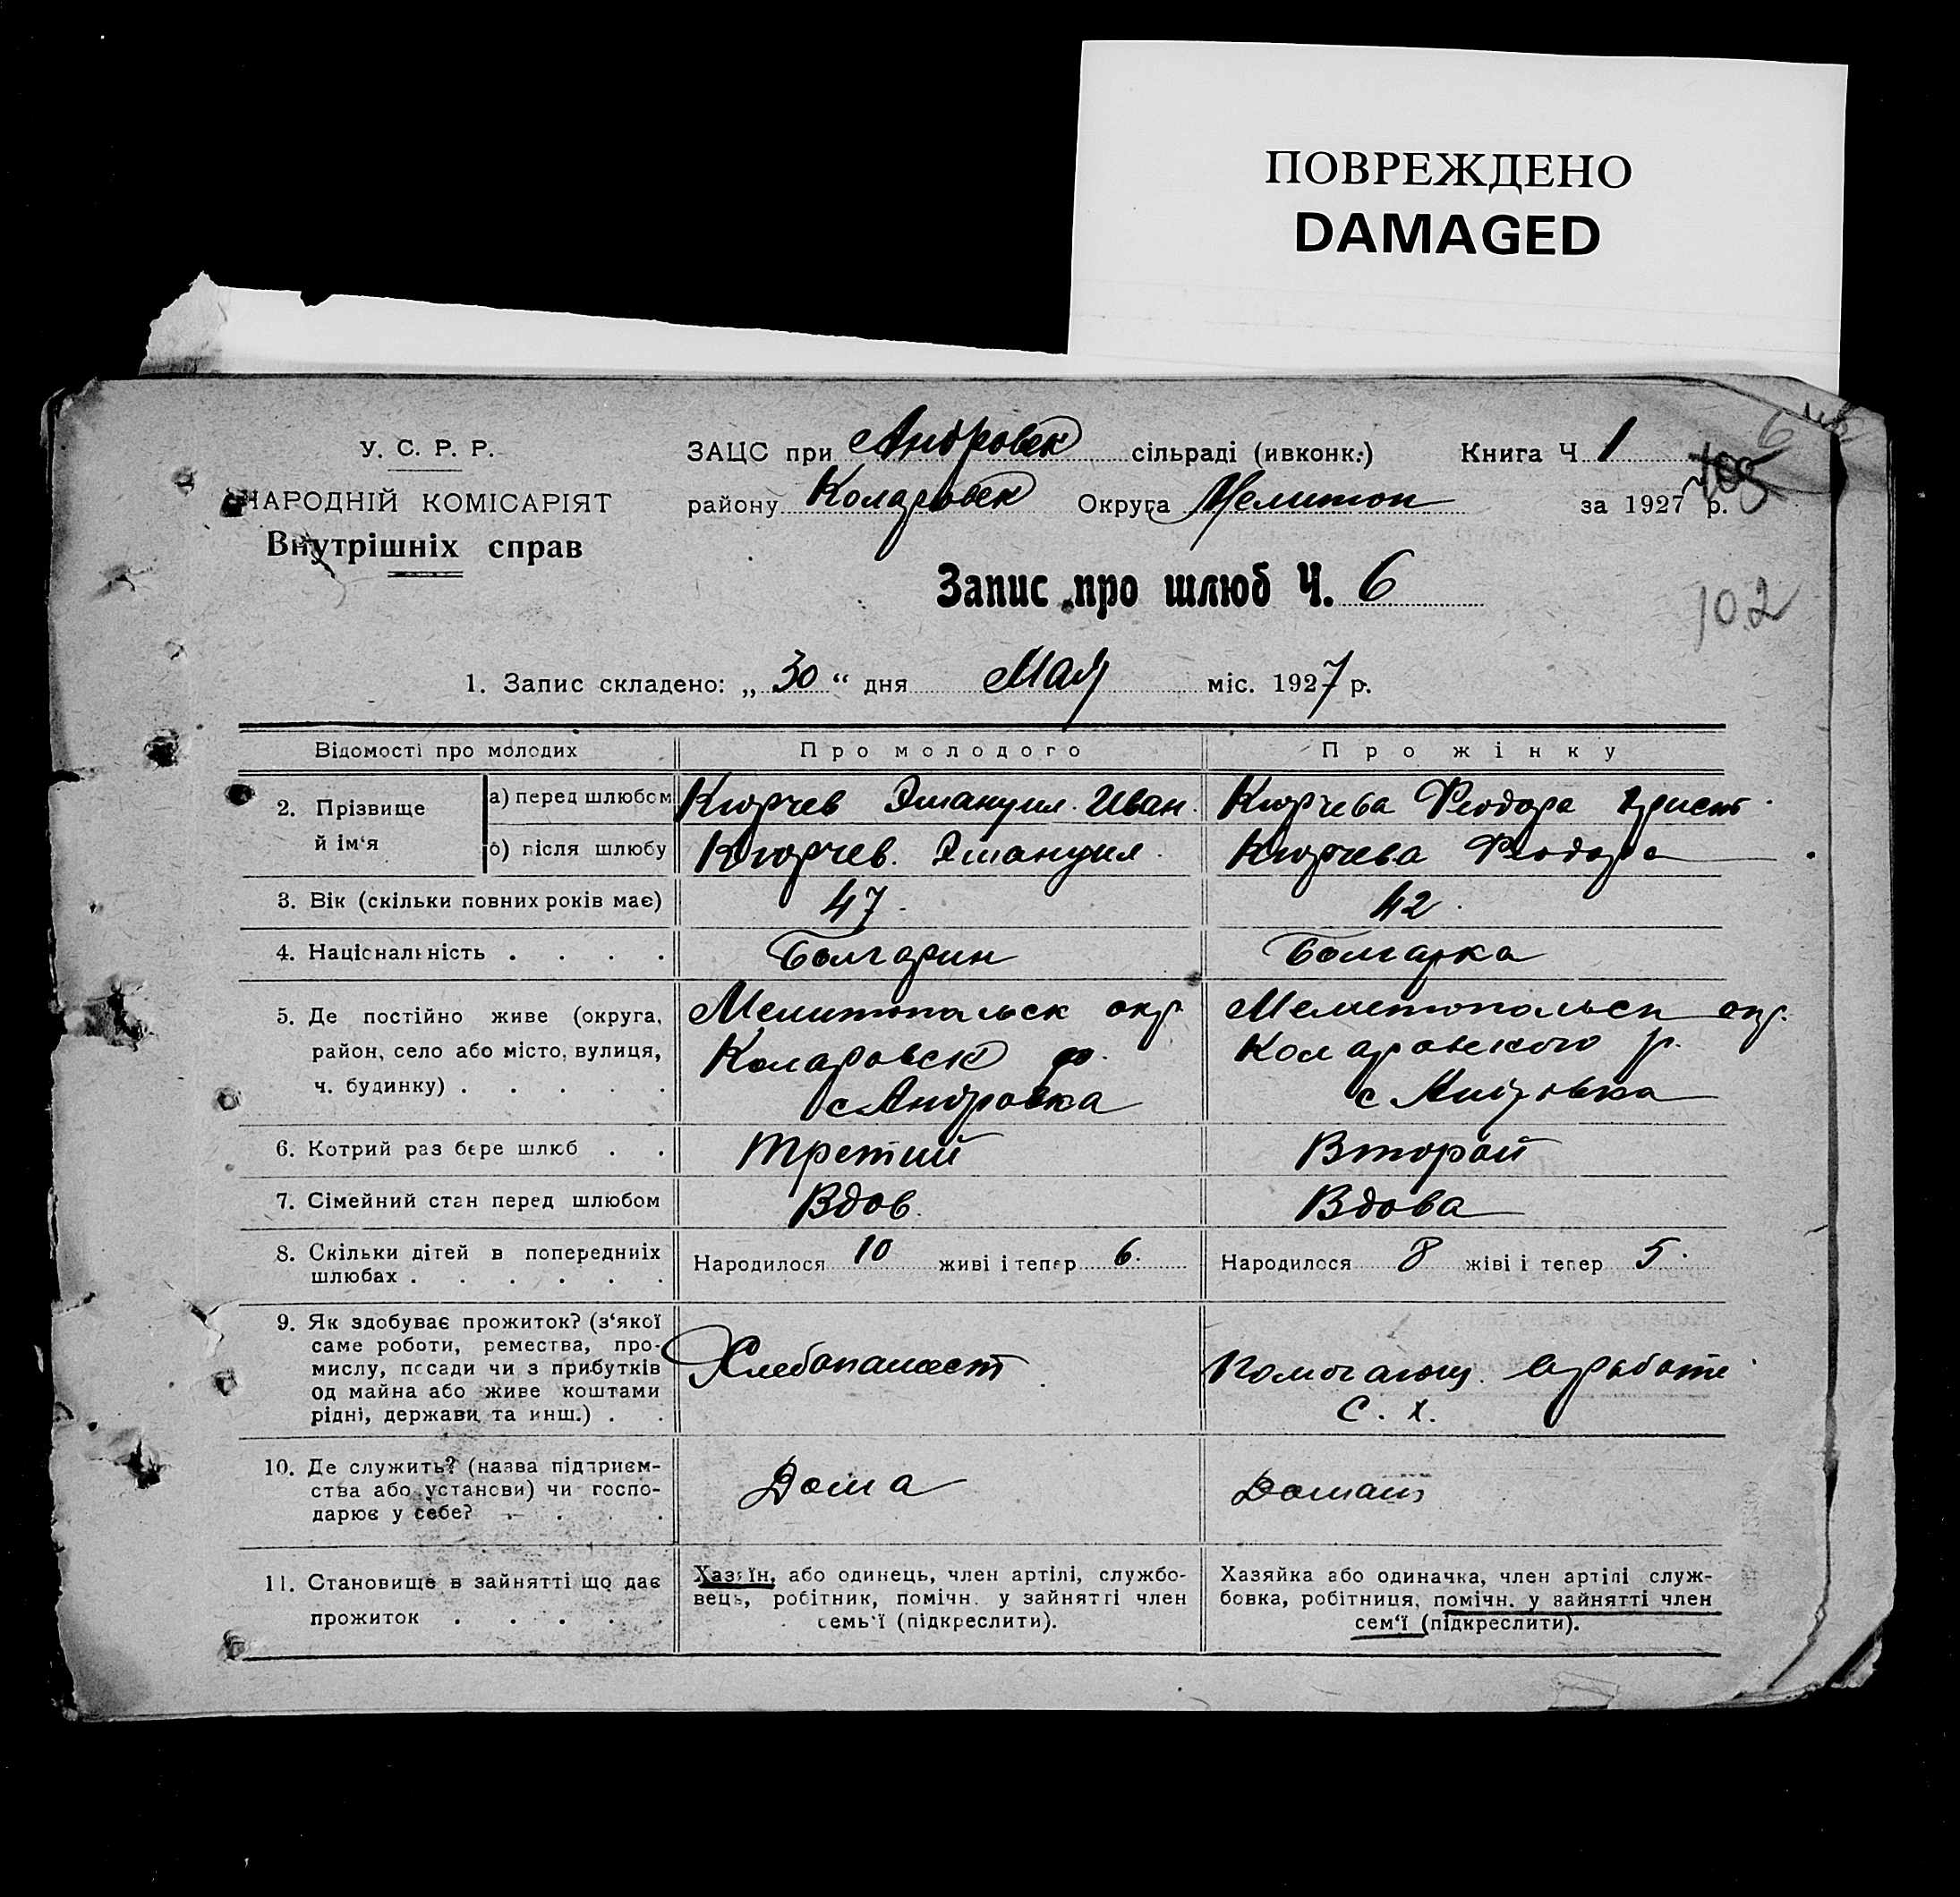 ПОВРЕЖДЕНО
DAMAGED
У. С. Р. Р.
НАРОДНІЙ КОМІСАРІЯТ
Внутрішніх справ
ЗАЦС при Андровск сільраді (ивконк.) Книга Ч 1
району Коларовск Округа Мелитоп за 1927 р.
Запис про шлюб Ч. 6
102
1. Запис складено: „ 30 “ дня Мая міс. 1927 р.
Відомості про молодих Про молодого Про жінку
2. Прізвище й ім‘я а) перед шлюбом Кюрчев Эмануил Иван. Кюрчева Феодора Христ.
б) після шлюбу Кюрчев Эмануил Кюрчева Феодора
3. Вік (скільки повних років має) 47 42
4. Національність . . . . Болгарин Болгарка
5. Де постійно живе (округа, Мелитопольск окр. Мелитопольск окр.
район, село або місто, вулиця, Коларовск р. Коларовского р.
ч. будинку) . . . . . с Андровка с Андровка
6. Котрий раз бере шлюб . . Третий Второй
7. Сімейний стан перед шлюбом Вдов. Вдова
8. Скільки дітей в попередниїх шлюбах . . . . . . Народилося 10 живі і тепер 6. Народилося 8 жіві і тепер 5.
9. Як здобуває прожиток? (з‘якої
саме роботи, ремества, про-
мислу, посади чи з прибутків Хлебопашест Помогающ. в работе
од майна або живе коштами С. х.
рідні, держави та инш.) . .
10. Де служить? (назва підприєм-
ства або установи) чи госпо- Дома Домаш
дарює у себе? . . .
11. Становище в зайнятті що дає прожиток . . . . .
Хазяїн, або одинець, член артілі, службо-
вець, робітник, помічн. у зайнятті член
семь‘ї (підкреслити).
Хазяйка або одиначка, член артілі служ-
бовка, робітниця, помічн. у зайнятті член
сем‘ї (підкреслити).